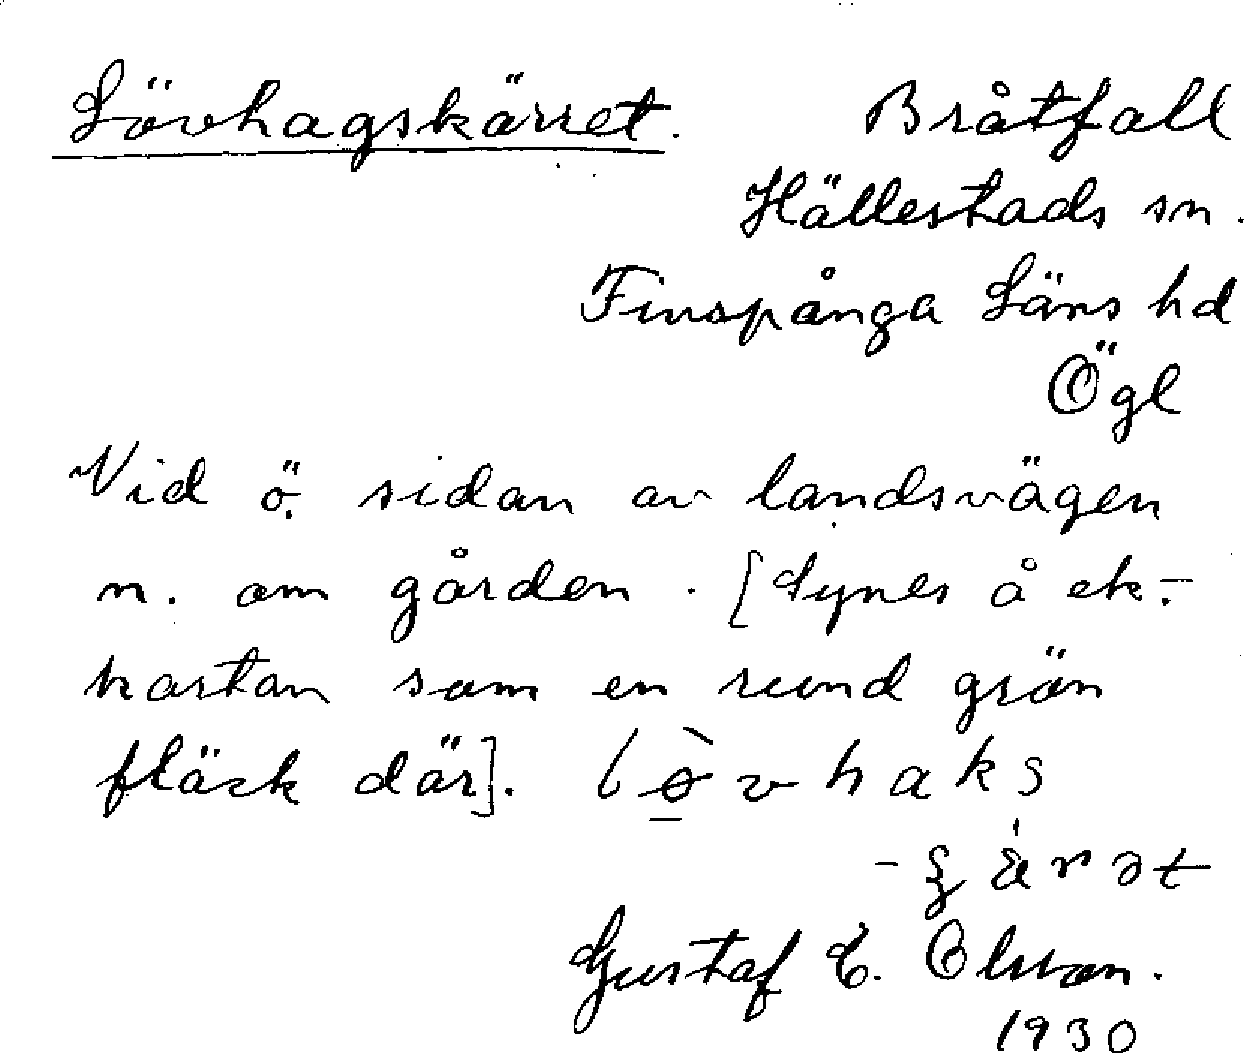 Lövhagskärret. Bråtfall
Hällestads sn.
Finspånga Läns hd
Ögl
Vid ö. sidan av landsvägen
n. om gården. [Synes å ek.-
kartan som en rund grön
fläck där].
Gustaf E. Olsson.
1930